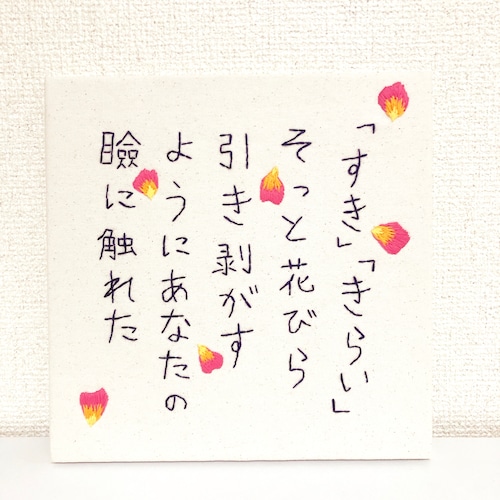 「すき」「きらい」
そっと花びら
引き剥がす
ようにあなたの
瞼に触れた